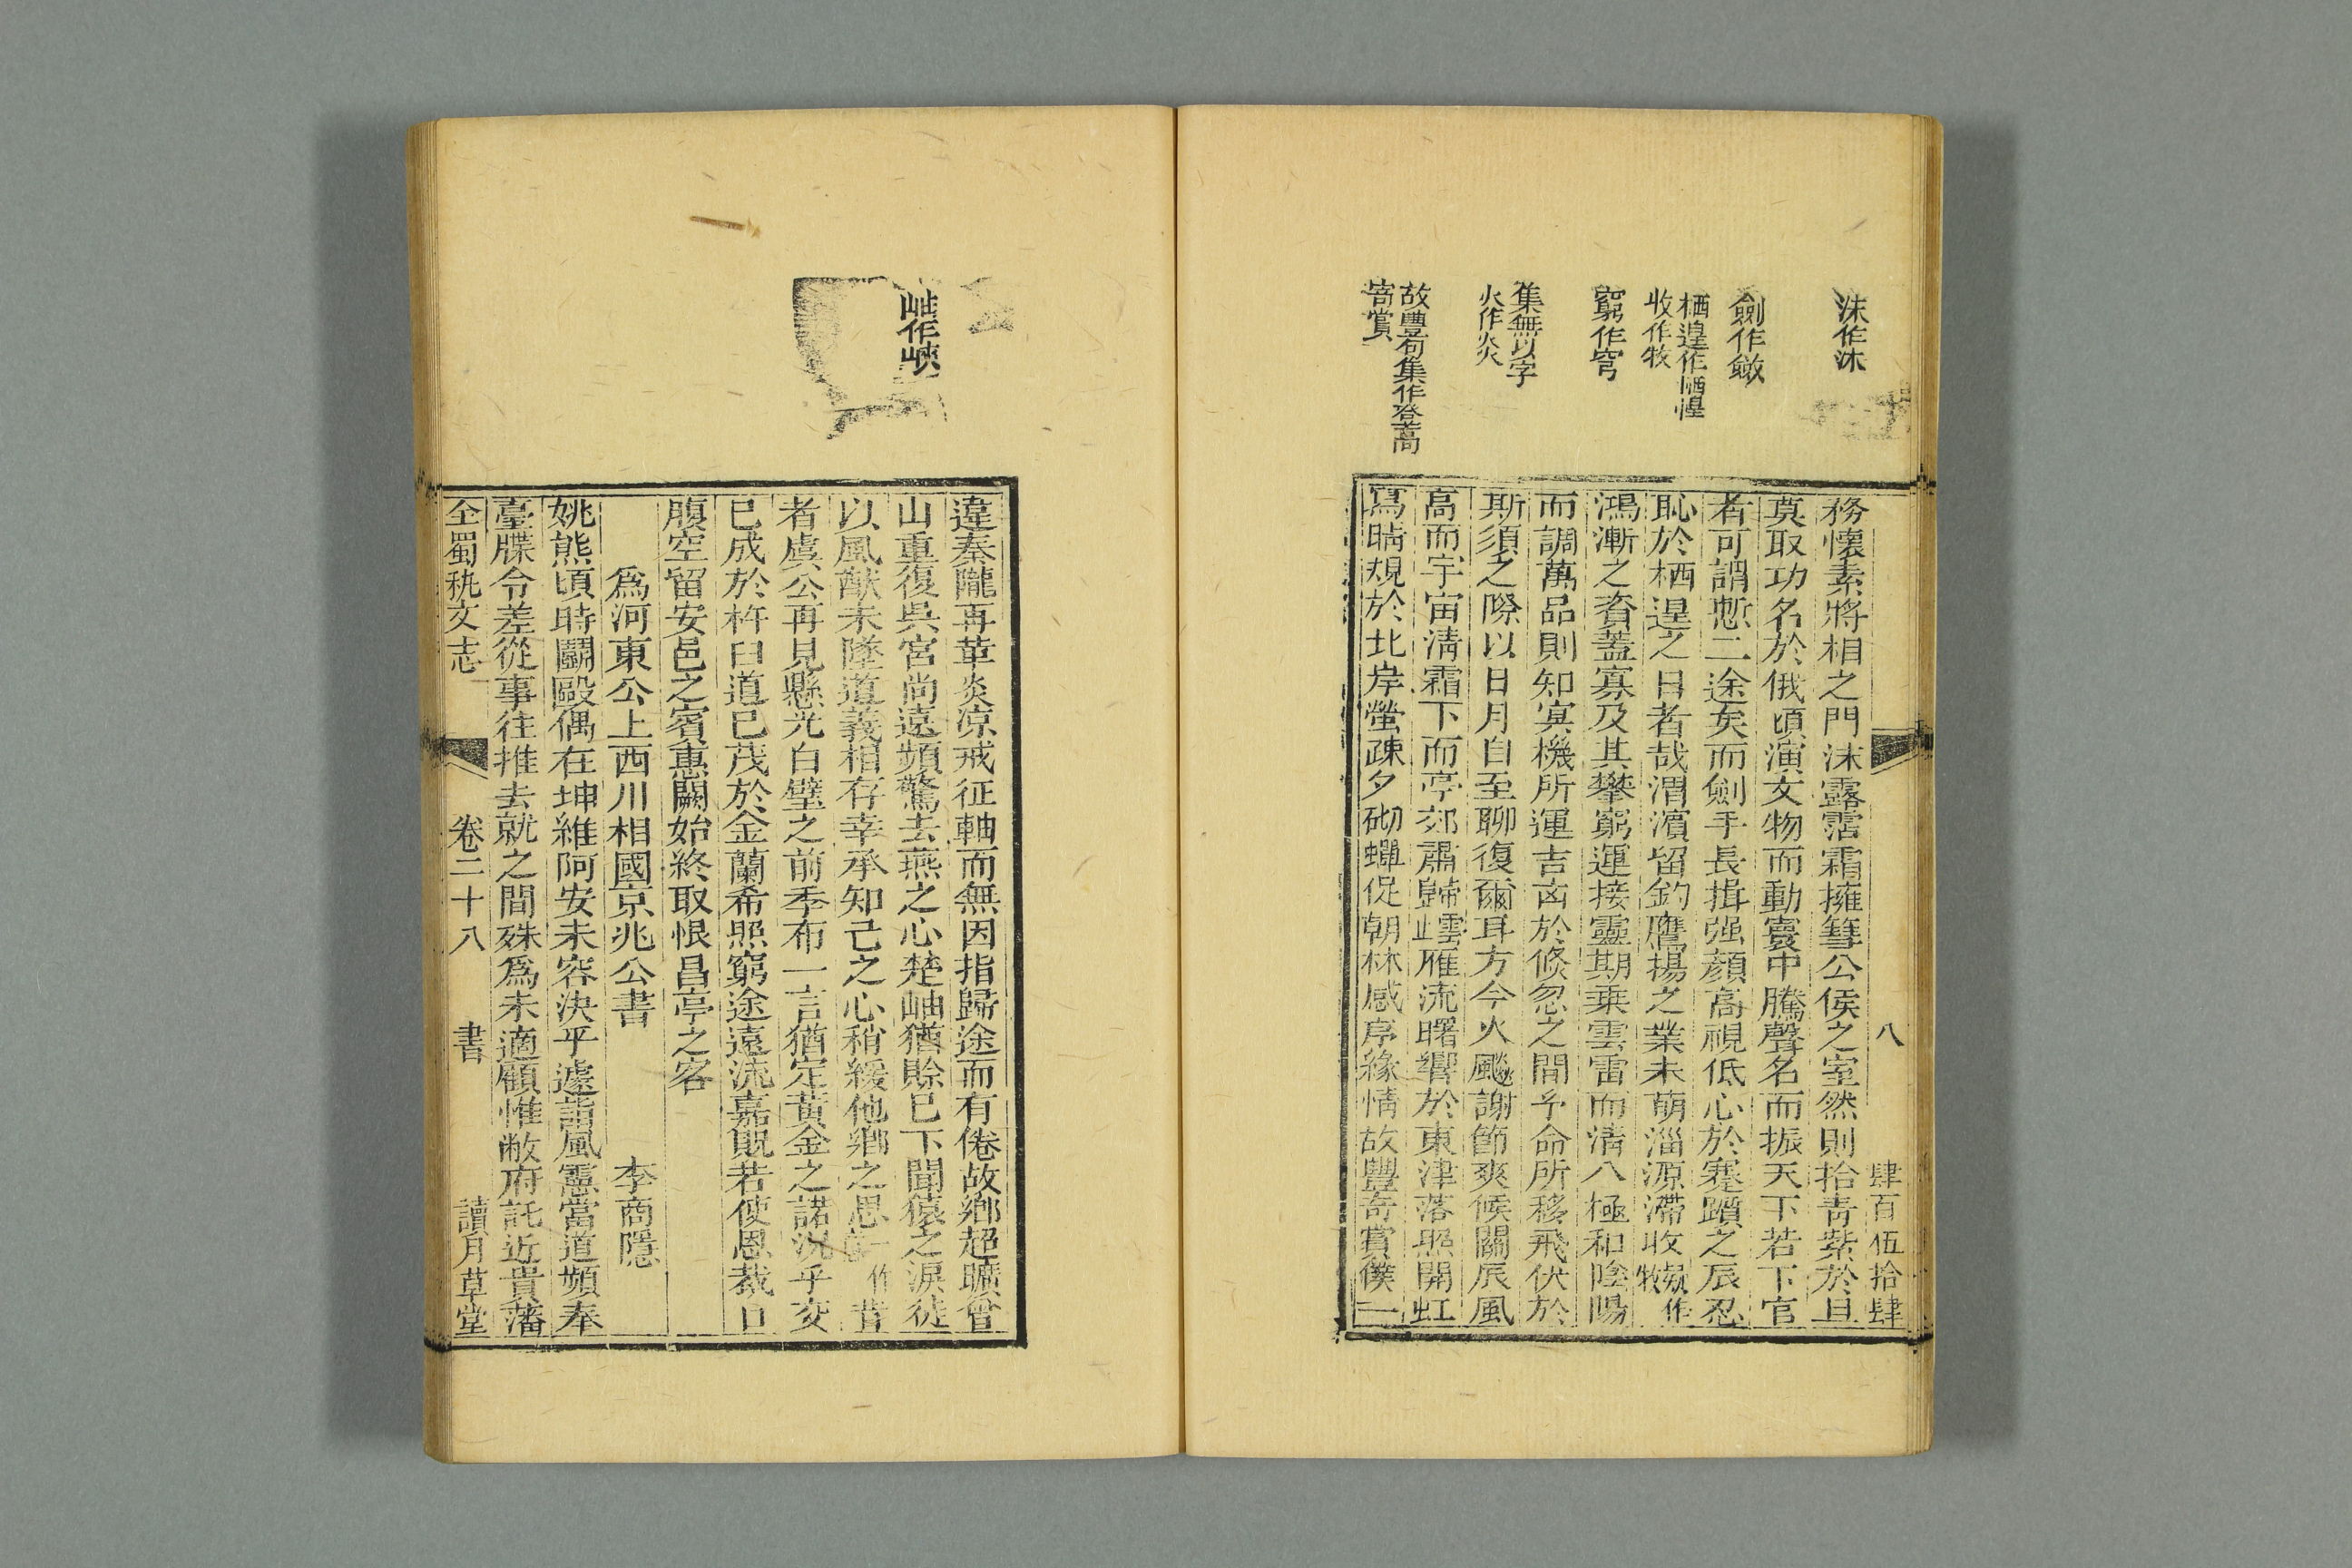 沫作沐
劍作斂
栖遑作恓惶
收作牧
窮作穹
集無以字
火作炎
故豐句集作登高
寄賞
八
肆百伍拾肆
務懷素將相之門沫露霑霜擁篲公侯之室然則拾青紫於旦
莫取功名於俄頃演文物而動寰中騰聲名而振天下若下官
者可謂慙二途矣而劍手長揖强顏高視低心於蹇躓之辰忍
恥於栖遑之日者哉渭濱留釣鷹揚之業未萌淄源滯收疑作牧
鴻漸之資蓋寡及其攀窮運接靈期乘雲雷而淸八極和陰陽
而調萬品則知冥機所運吉凶於倏忽之間予命所移飛伏於
斯須之際以日月自至聊復爾耳方今火颷謝節爽候關辰風
高而宇宙淸霜下而亭郊肅歸雲雁流曙響於東津落照開虹
寫晴規於北岸螢疎夕砌蟬促朝林感序緣情故豐奇賞僕一
岫作峽
違秦隴再革炎凉戒征軸而無因指歸途而有倦故鄉超曠曾
山重復吳宮尚遠頻驚去燕之心楚岫猶賒巳下聞猿之淚徒
以風猷未墜道義相存幸承知己之心稍緩他鄉之思一作昔
者虞公再見懸光白璧之前季布一言猶定黃金之諾況乎交
巳成於杵臼道巳茂於金蘭希照窮途遠流嘉貺若使恩裁口
腹空留安邑之賓惠闕始終取恨昌亭之客
爲河東公上西川相國京兆公書　李商隱
姚熊頃時鬭毆偶在坤維阿安未容決平遽詣風憲當道頻奉
臺牒令差從事往推去就之間殊爲未適顧惟敝府託近貴藩
全蜀秇文志　卷二十八　書　讀月草堂